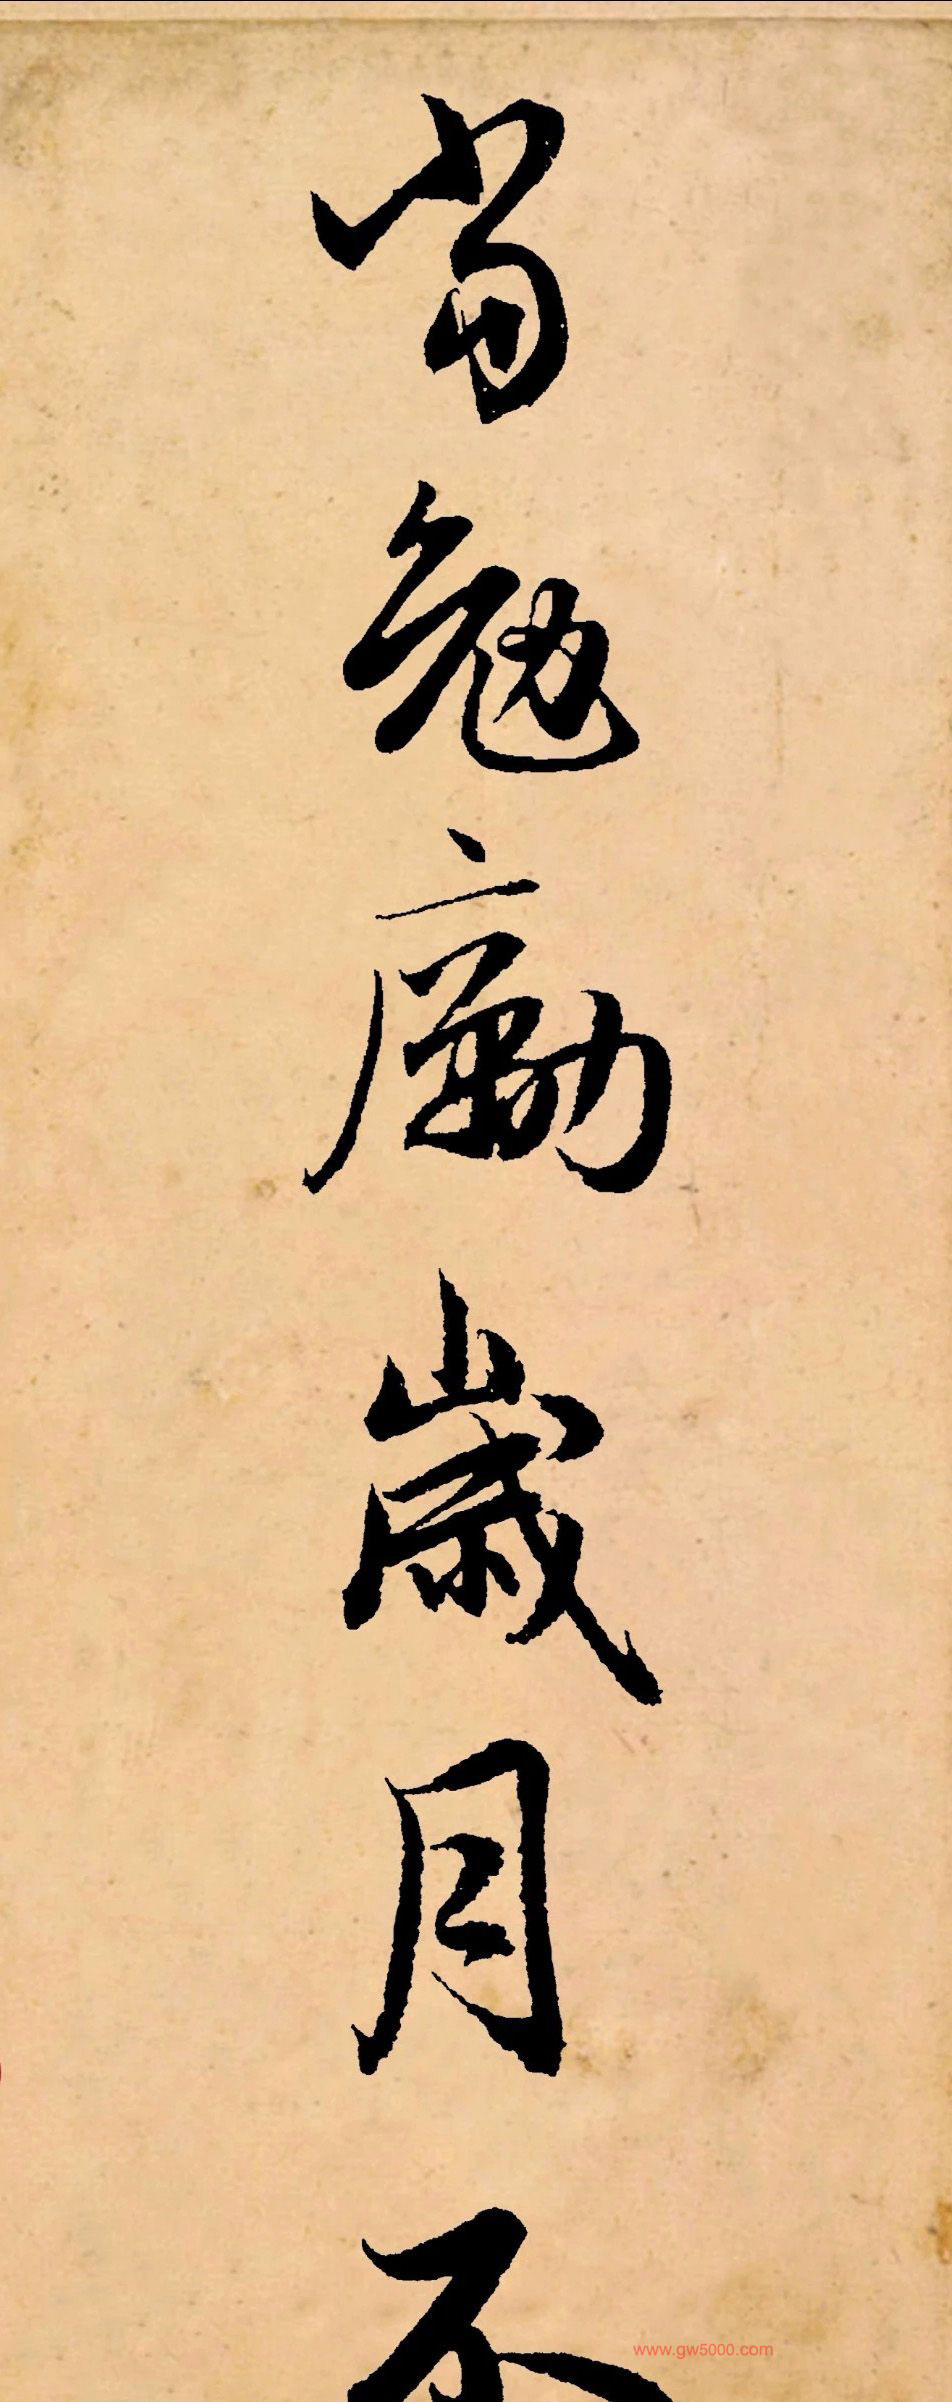 當勉勵歲月不
www.gw5000.com